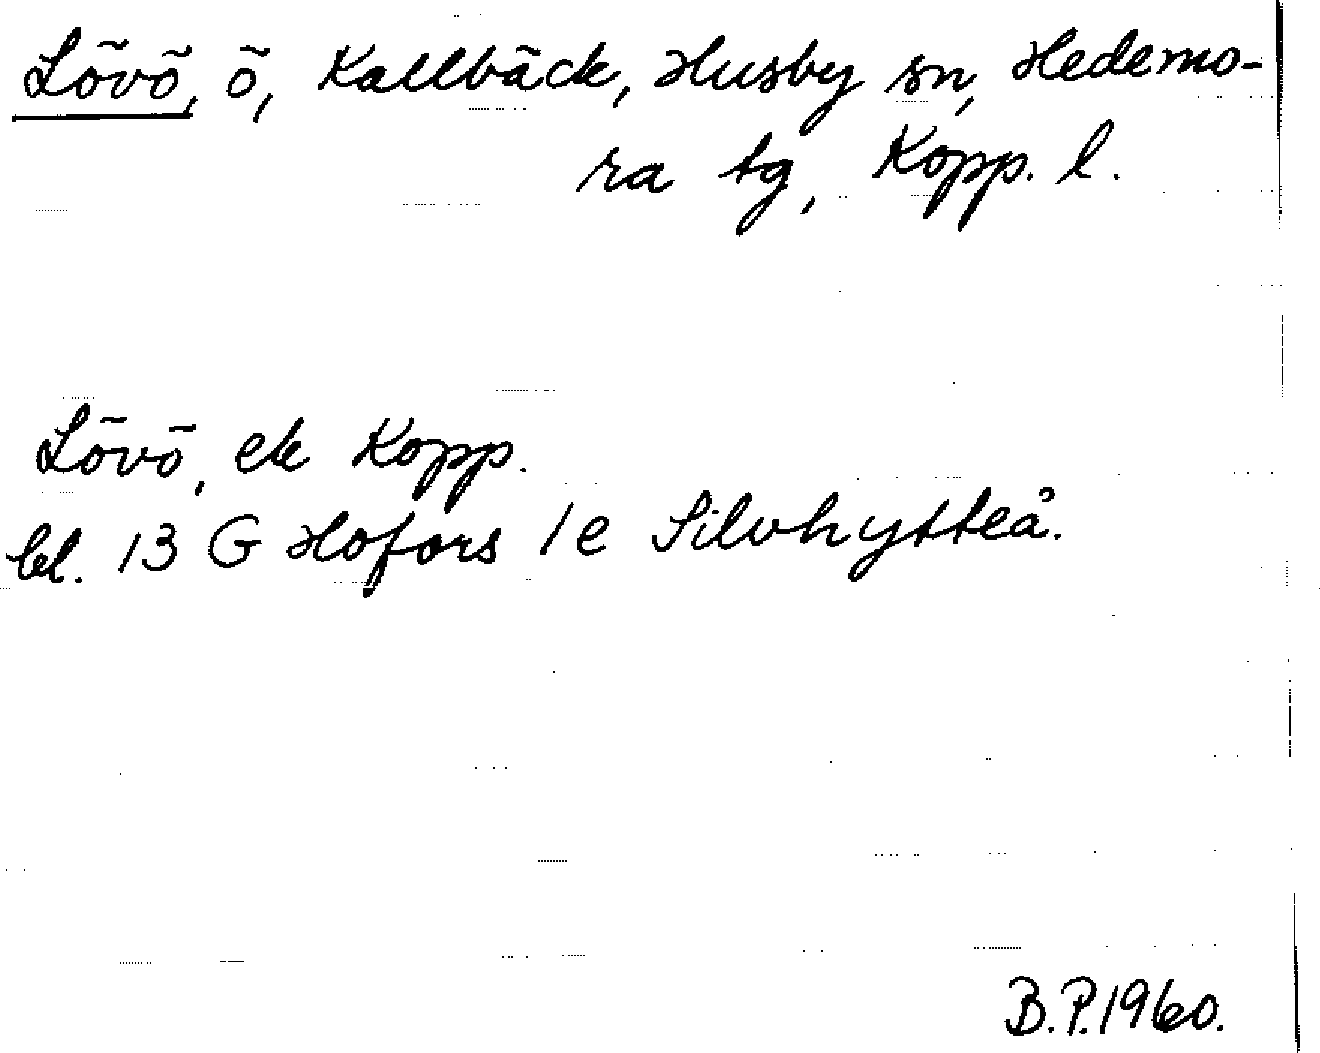 Lövö, ö, Kallbäck, Husby sn, Hedemo-
ra tg, Kopp. l.
Lövö, ek Kopp.
bl. 13 G Hofors 1e Silvhytteå.
B.P. 1960.